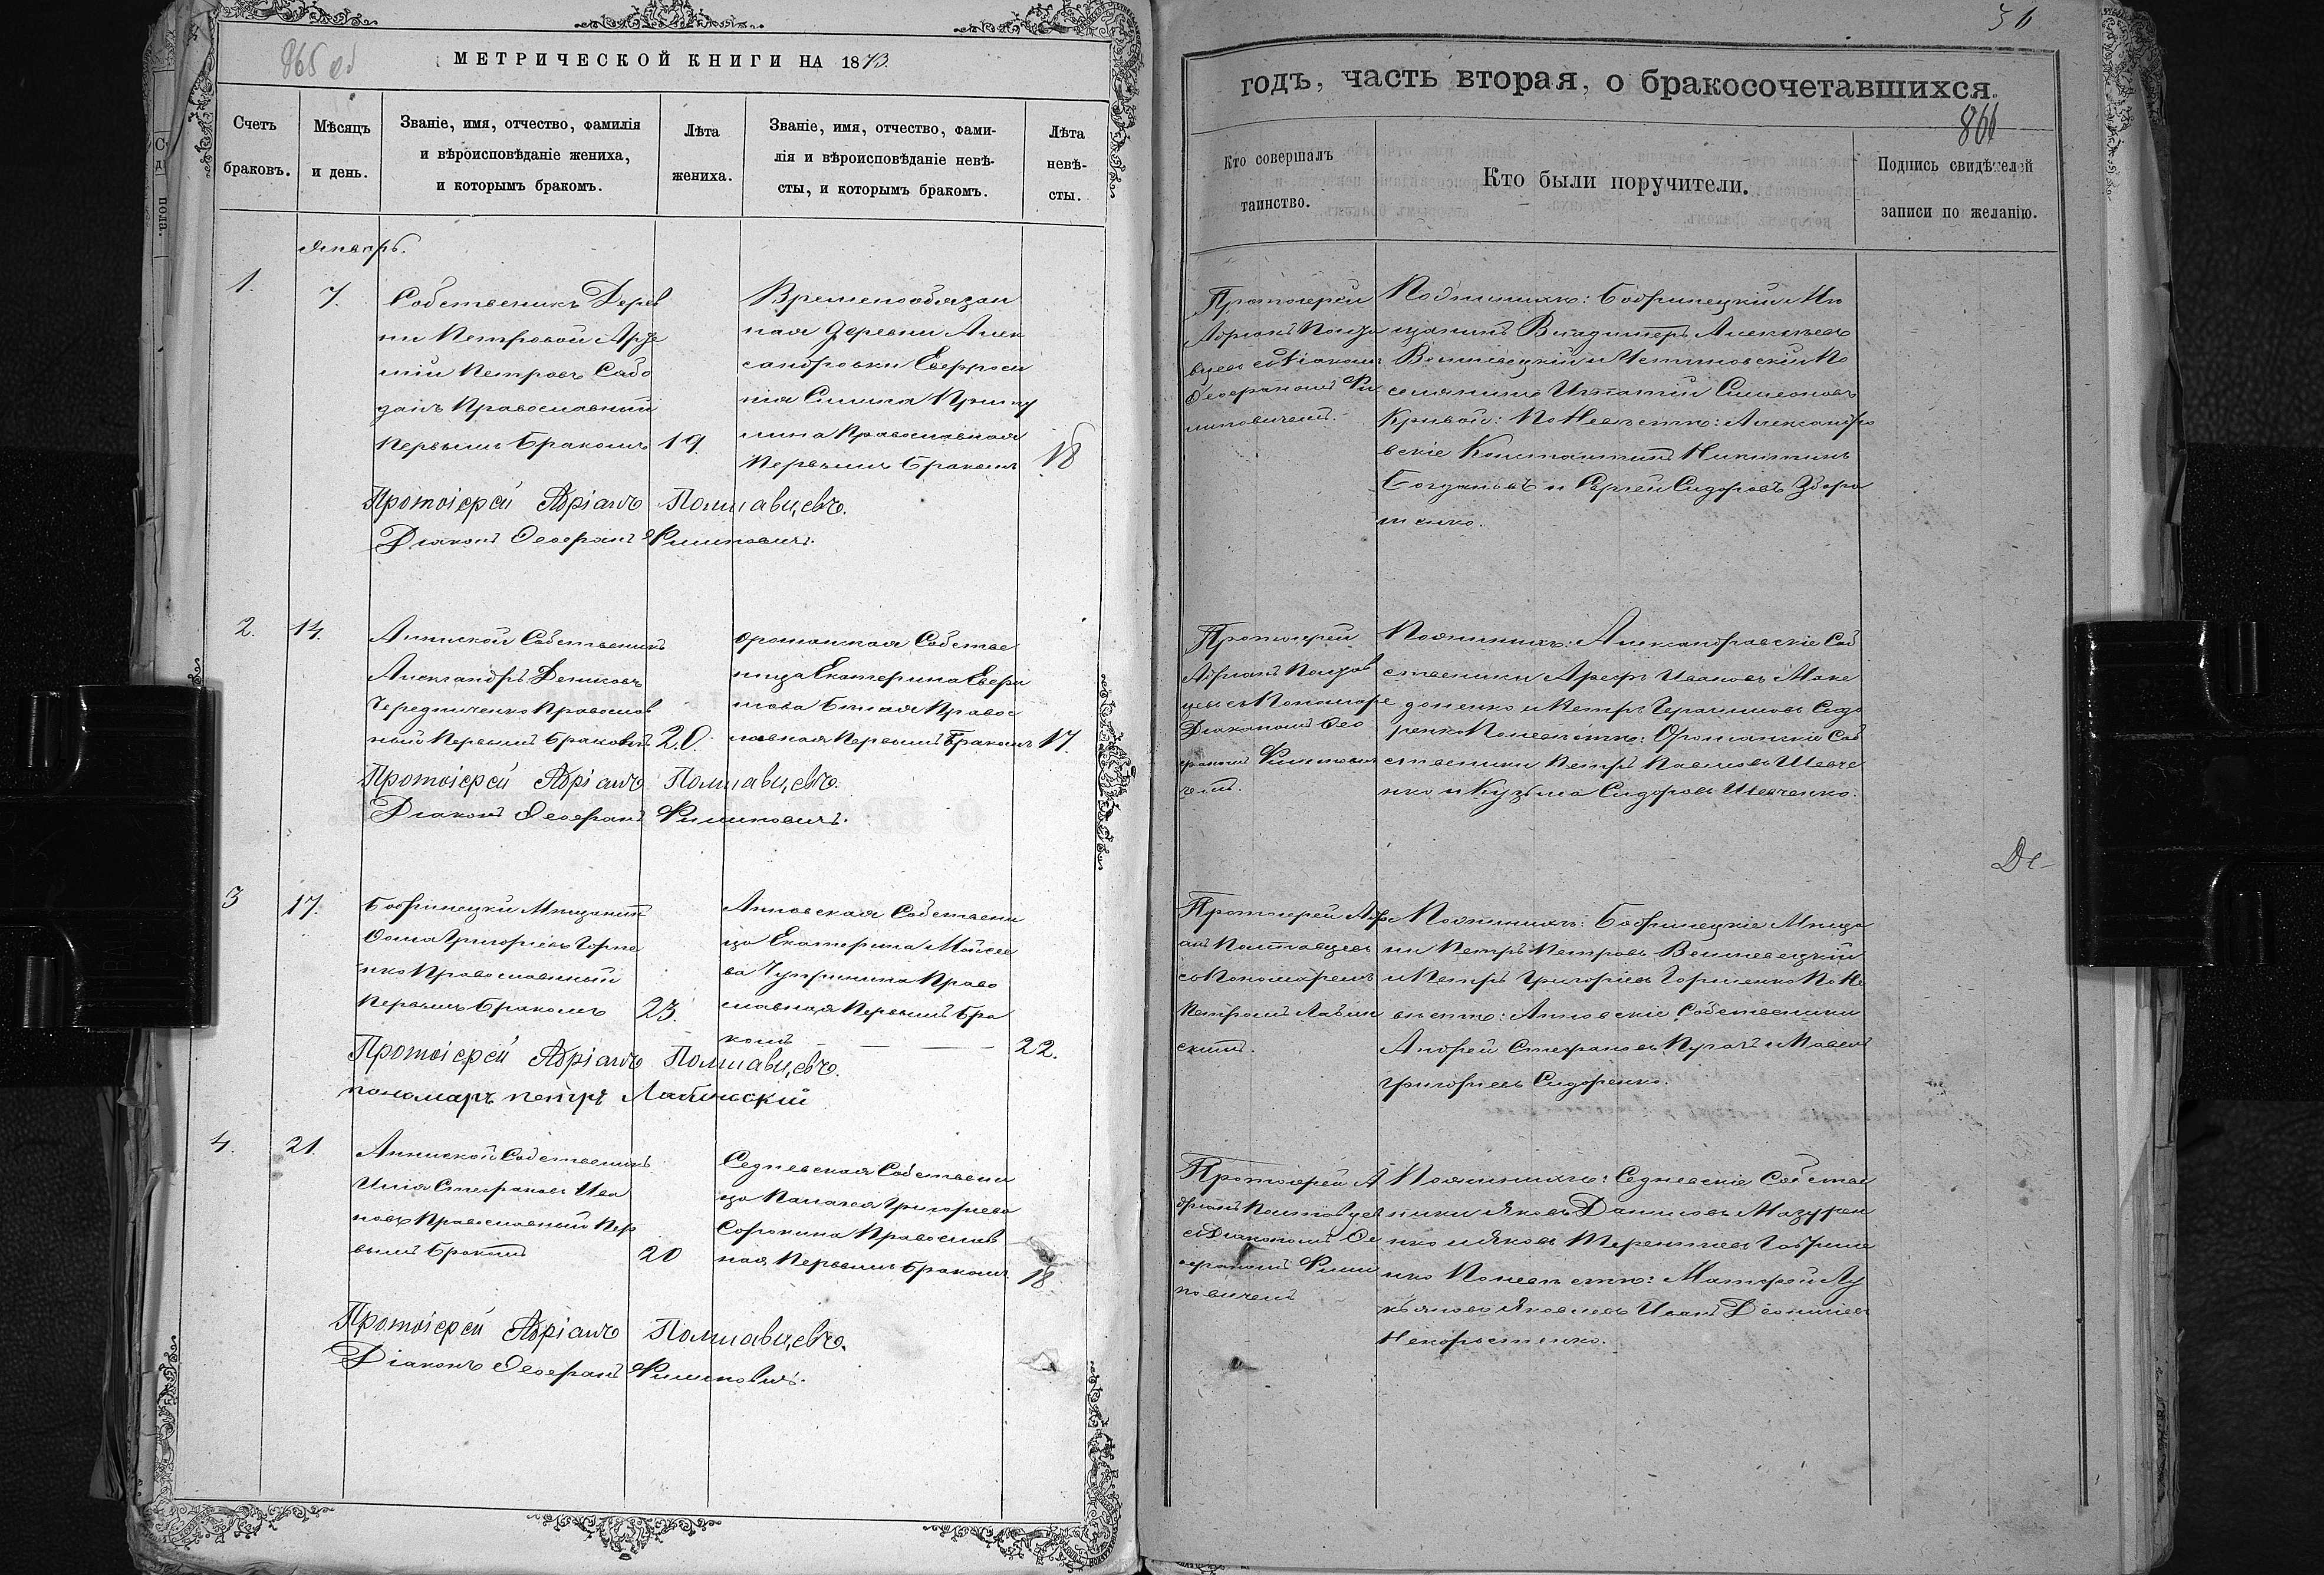 865 об
МЕТРИЧЕСКОЙ КНИГИ НА 1873.
Счетъ браковъ.
Мѣсяцъ и день.
Званіе, имя, отчество, фамилія
и вѣроисповѣданіе жениха,
и которымъ бракомъ.
Лѣта жениха.
Званіе, имя, отчество, фами-
лія и вѣроисповѣданіе невѣ-
сты, и которымъ бракомъ.
Лѣта невѣ-
сты.
Январь.
1.
7.
Собственикъ Дерев
ни Петровой
Петровъ
Православный
Первымъ Бракомъ
19.
Временообязан
ная деревни Алек
сандровки Евфроси
нія
Православная
Первымъ Бракомъ
18
Протоіерей Адріанъ Полтавцевъ.
Діаконъ Ѳеофанъ Филиповичъ.
2.
14.
Собственикъ
Александръ Денисовъ
Чередниченко Православ
ный Первымъ Бракомъ
20.
Собстве
ница Екатерина
Бѣлая Правос
лавная Первымъ Бракомъ
17.
Протоіерей Адріанъ Полтавцевъ.
Діаконъ Ѳеофанъ Филиповичъ.
3
17.
Бобринецкій Мѣщанинъ
Ѳома Григорьевъ Горпе
нко Православный
Первымъ Бракомъ
23.
Анновская Собствени
ца Екатерина Мойсее
ва Чуприна Право
славная Первымъ Бра
комъ
22.
Протоіерей Адріанъ Полтавцевъ.
пономарь петръ Лабиньскій
4.
21.
Собственикъ
Илія Стефановъ Ива
новъ Православный Пер
вымъ Бракомъ
20
Седневская Собствени
ца Палагея Григорьева
Сорокина Православ
ная Первымъ Бракомъ
18
Протоіерей Адріанъ Полтавцевъ.
Діаконъ Ѳеофанъ Филиповичъ.
36
годъ, часть вторая, о бракосочетавшихся.
866
Кто совершалъ
таинство.
Кто были поручители.
Подпись свидѣтелей
записи по желанію.
Протоіерей
Адріанъ Полта
вцевъ съ Діакономъ
Ѳеофаномъ Фи
липовичемъ.
По жениху: Бобринецкій Мѣ
щанинъ Владимеръ Алексѣевъ
Вешневецкій и По
селянинъ Игнатій Симеоновъ
Кривой: По Невѣстѣ: Александро
вскіе Константинъ Никитинъ
Богдановъ и Сергей Сидоровъ
Протоіерей
Адріанъ Полтав
цевъ съ
Діакономъ Ѳео
фаномъ Филипови
чемъ.
По жениху: Александровскіе Соб
ственики Ивановъ Маке
доненко и Петръ Герасимовъ Сидо
ренко По невѣстѣ: Соб
ственики Петръ Павловъ Шевче
нко и Кузьма Сидоровъ Шевченко.
Протоіерей Адрі
анъ Полтавцевъ
съ Пономаремъ
Петромъ Лабин
скимъ.
По жениху: Бобринецкіе Мѣща
ни Петръ Петровъ Вешневецкій
и Петръ Григорьевъ Горпенко По Не
вѣстѣ: Анновскіе Собственики
Андрей Стефановъ и Павелъ
Григорьевъ Сидоренко.
Протоіерей А
дріанъ Полтавцевъ
съ Діакономъ Ѳе
офаномъ Фили
повичемъ
По жениху: Седневскіе Собстве
ники Яковъ Даниловъ Мазурен
ко и Яковъ Терентіевъ Гаврише
нко По невѣстѣ: Матфей Лу
кьяновъ Яковлевъ Иванъ Діонисіев